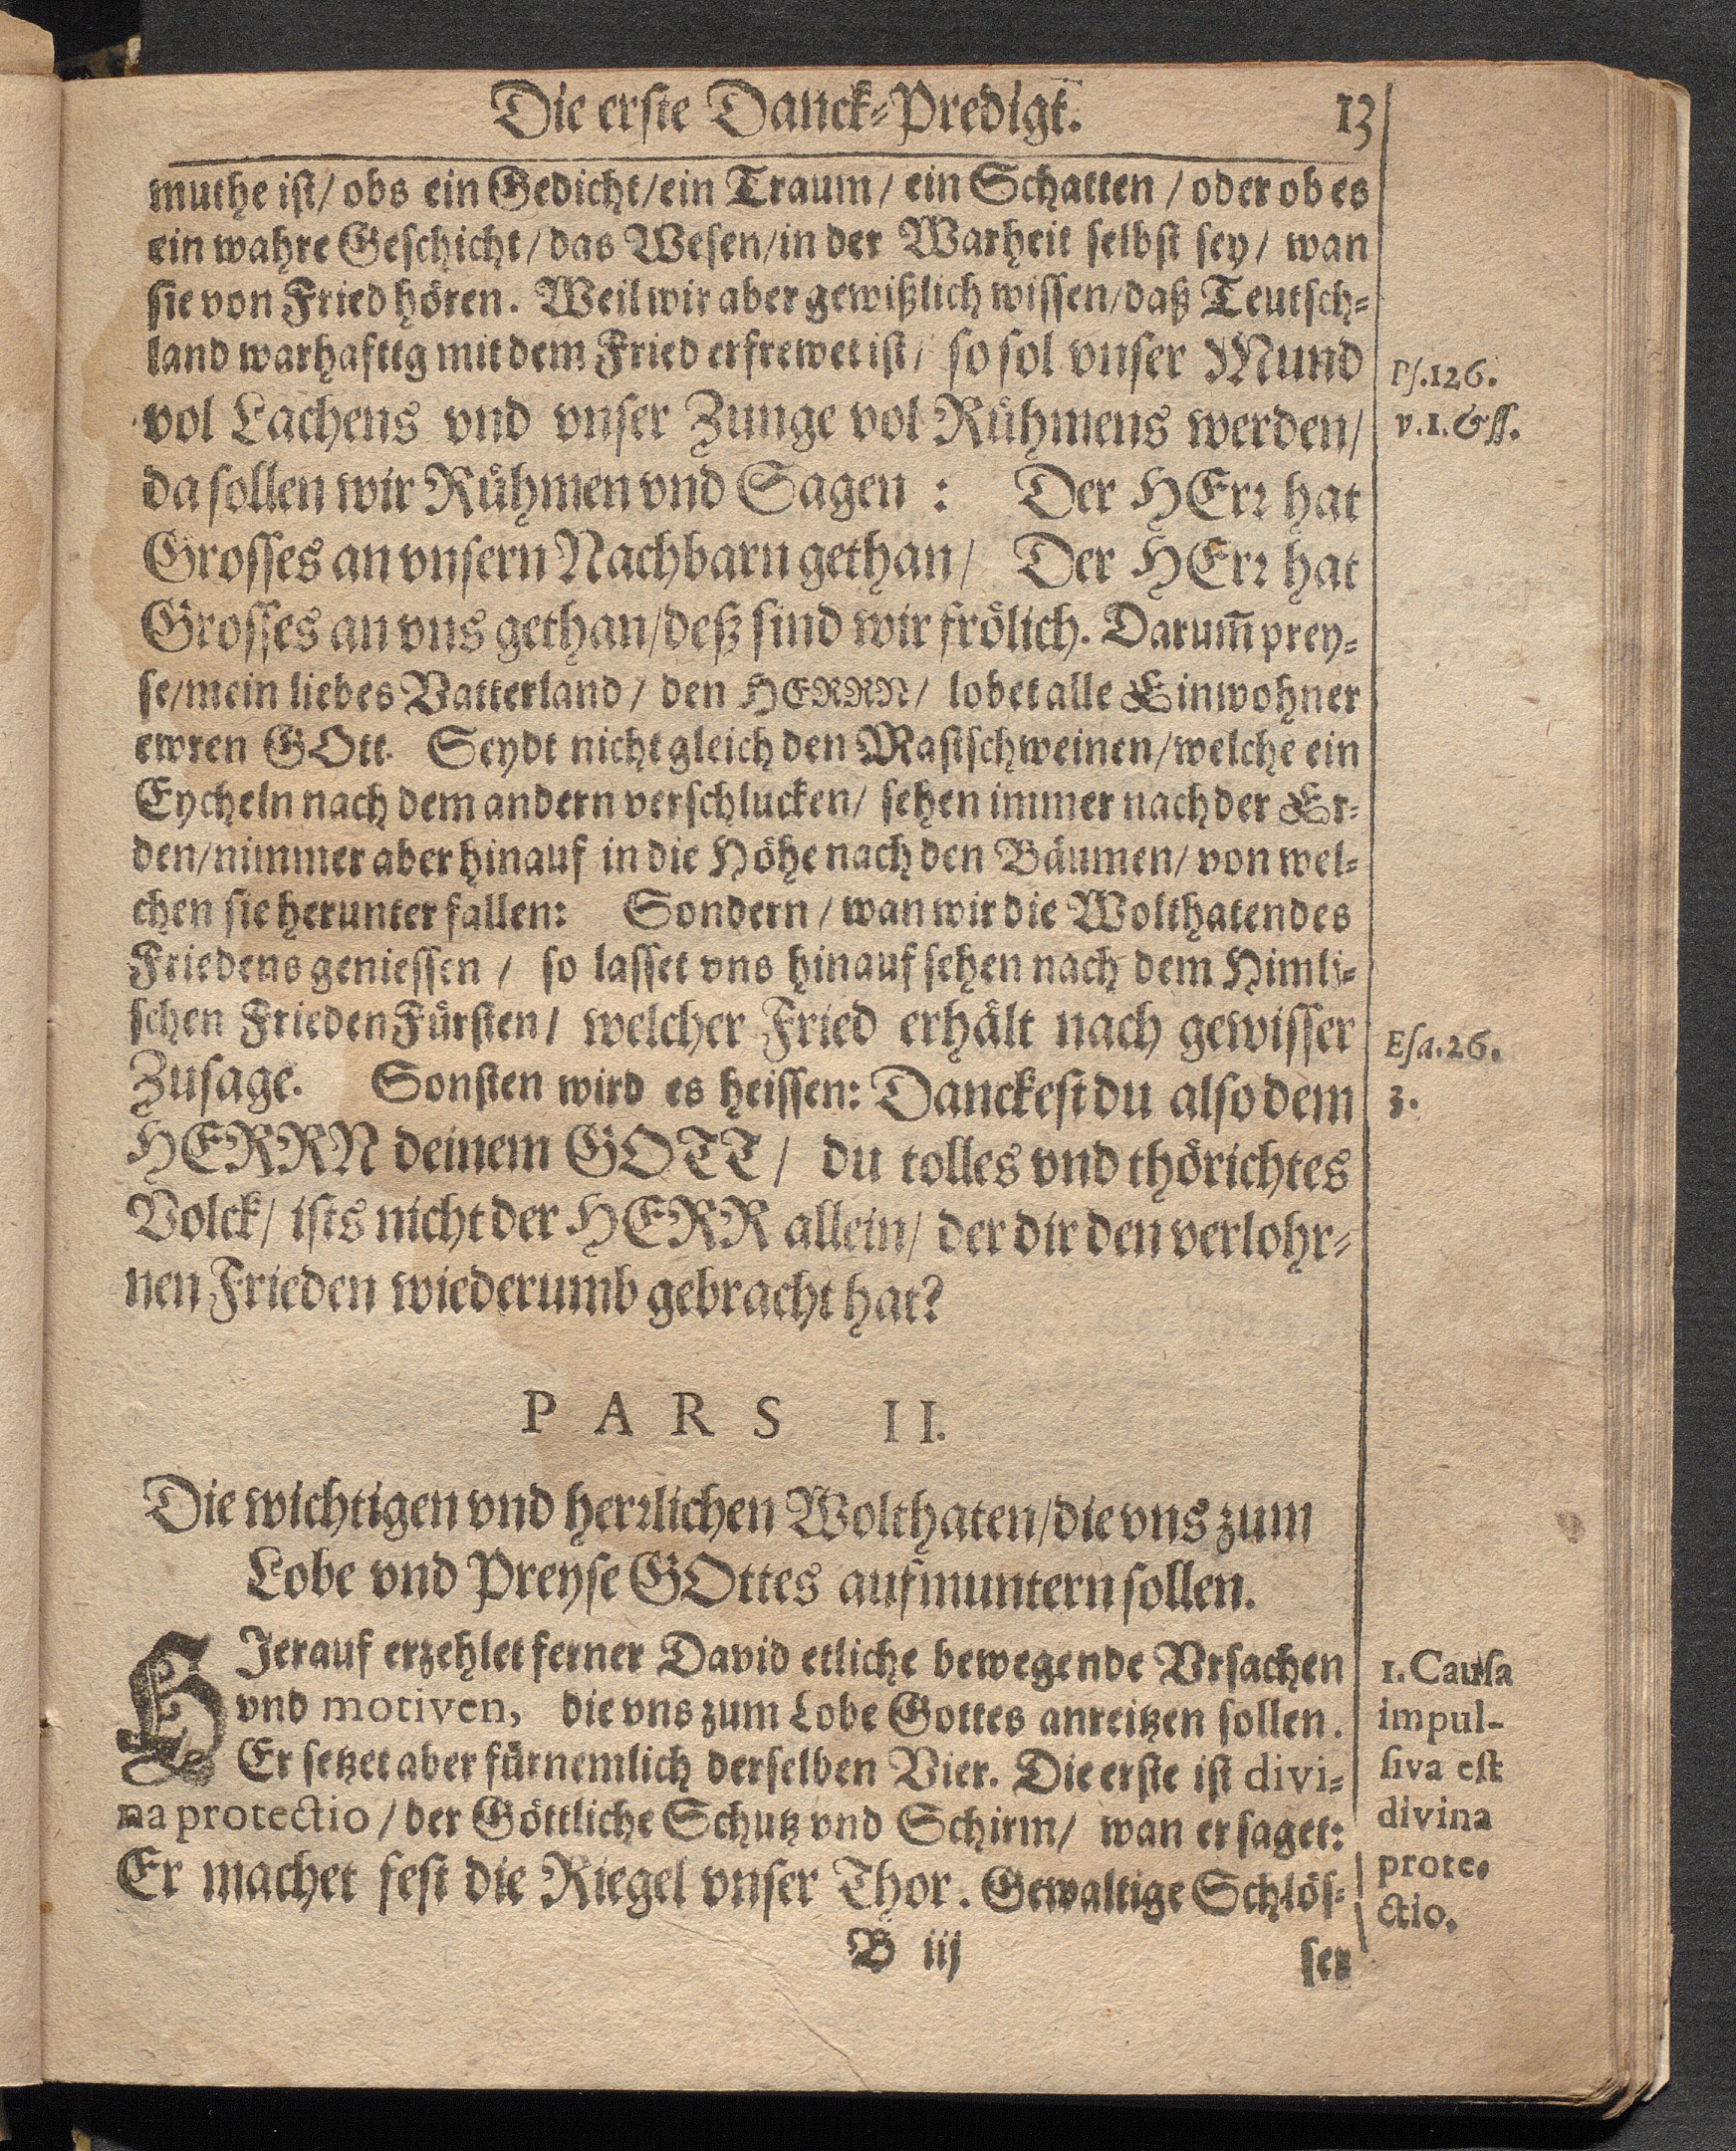 Die erste Danck-Predigt. 13
muthe ist/ obs ein Gedicht/ein Traum/ ein Schatten / oder ob es
ein wahre Geschicht/das Wesen/in der Warheit selbst sey/ wan
sie von Fried hören. Weil wir aber gewißlich wissen/daß Teutsch-
land warhafttg mit dem Fried erfrewet ist/ so sol vnser Mund
Ps.126.
vol Lachens vnd vnser Zunge vol Rühmens werden/
v.1.&ss.
da sollen wir Rühmen vnd Sagen : Der HErr hat
Grosses an vnsern Nachbarn gethan/ Der HErr hat
Grosses an vns gethan/deß sind wir frölich. Darum̃ prey-
se/mein liebes Vatterland/ den HERRN/ lobet alle Einwohner
ewren GOtt. Seydt nicht gleich den Mastschweinen/welche ein
Eycheln nach dem andern verschlucken/ sehen immer nach der Er-
den/nimmer aber hinauf in die Höhe nach den Bäumen/ von wel-
chen sie herunter fallen: Sondern / wan wir die Wolthaten des
Friedens geniessen / so lasset vns hinauf sehen nach dem Himli-
schen FriedenFürsten/ welcher Fried erhält nach gewisser
Esa.26.
Zusage. Sonsten wird es heissen: Danckest du also dem
3.
HERRN deinem GOTT/ du tolles vnd thörichtes
Volck/ ists nicht der HERR allein/ der dir den verlohr-
nen Frieden wiederumb gebracht hat?
PARS II.
Die wichtigen vnd herrlichen Wolthaten/die vns zum
Lobe vnd Preyse GOttes aufmuntern sollen.
HJerauf erzehlet ferner David etliche bewegende Vrsachen
vnd motiven, die vns zum Lobe Gottes anreitzen sollen.
Er setzet aber fürnemlich derselben Vier. Die erste ist divi-
na protectio / der Göttliche Schutz vnd Schirm/ wan er saget:
Er machet fest die Riegel vnser Thor. Gewaltige Schlös-
1. Causa
impul-
siva est
divina
prote-
ctio.
B iij ser